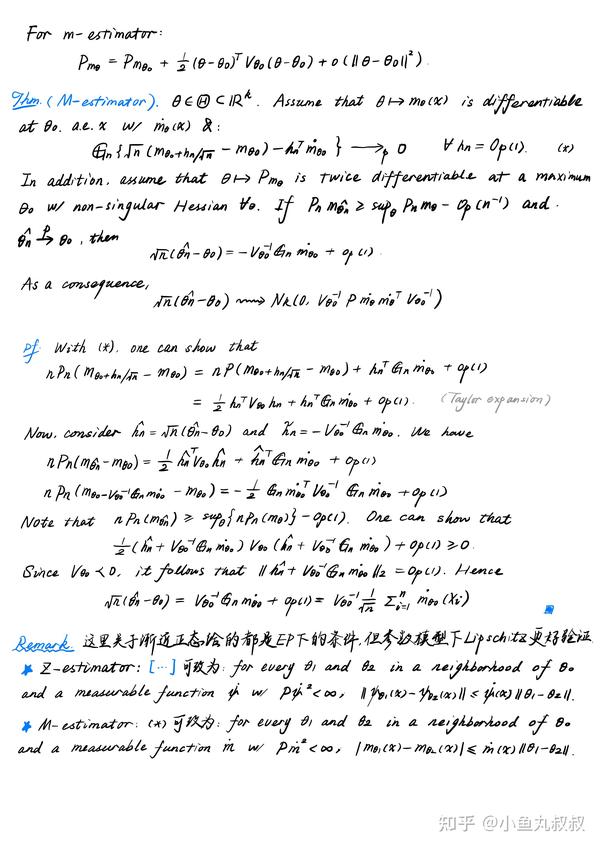 For m-estimator:
Pm_θ = Pm_θ₀ + ½(θ-θ₀)ᵀ V_θ₀ (θ-θ₀) + o(‖θ-θ₀‖²).
Thm. (M-estimator). θ∈Θ⊂ℝᵏ. Assume that θ↦m_θ(x) is differentiable
at θ₀. a.e. x w/ ṁ_θ(x) &:
𝔾n{√n(m_{θ₀+hn/√n} - m_θ₀) - hnᵀ ṁ_θ₀} →p 0 ∀ hn = Op(1). (*)
In addition, assume that θ↦Pm_θ is twice differentiable at a maximum
θ₀ w/ non-singular Hessian V_θ. If Pn m_θ̂n ≥ sup_θ Pn m_θ - Op(n⁻¹) and.
θ̂n →p θ₀, then
√n(θ̂n-θ₀) = -V_θ₀⁻¹ 𝔾n ṁ_θ₀ + op(1).
As a consequence,
√n(θ̂n-θ₀) ⟿ Nk(0, V_θ₀⁻¹ P ṁ_θ₀ ṁ_θ₀ᵀ V_θ₀⁻¹)
pf: With (*), one can show that
nPn(m_{θ₀+hn/√n} - m_θ₀) = nP(m_{θ₀+hn/√n} - m_θ₀) + hnᵀ 𝔾n ṁ_θ₀ + op(1)
= ½ hnᵀ V_θ₀ hn + hnᵀ 𝔾n ṁ_θ₀ + op(1). (Taylor expansion)
Now, consider ĥn = √n(θ̂n-θ₀) and h̃n = -V_θ₀⁻¹ 𝔾n ṁ_θ₀. We have
nPn(m_θ̂n - m_θ₀) = ½ ĥnᵀ V_θ₀ ĥn + ĥnᵀ 𝔾n ṁ_θ₀ + op(1)
nPn(m_{θ₀-V_θ₀⁻¹𝔾n ṁ_θ₀} - m_θ₀) = -½ 𝔾n ṁ_θ₀ᵀ V_θ₀⁻¹ 𝔾n ṁ_θ₀ + op(1)
Note that nPn(m_θ̂n) ≥ sup_θ{nPn(m_θ)} - op(1). One can show that
½(ĥn + V_θ₀⁻¹ 𝔾n ṁ_θ₀) V_θ₀ (ĥn + V_θ₀⁻¹ 𝔾n ṁ_θ₀) + op(1) ≥ 0.
Since V_θ₀ < 0, it follows that ‖ĥn + V_θ₀⁻¹ 𝔾n ṁ_θ₀‖₂ = op(1). Hence
√n(θ̂n-θ₀) = V_θ₀⁻¹ 𝔾n ṁ_θ₀ + op(1) = V_θ₀⁻¹ 1/√n Σᵢ₌₁ⁿ ṁ_θ₀(Xi)
Remark. 这里关于渐近正态给的都是EP下的条件,但参数模型下Lipschitz更好验证
★ Z-estimator: [...] 可改为: for every θ₁ and θ₂ in a neighborhood of θ₀
and a measurable function ψ̇ w/ Pψ̇² < ∞, ‖ψ_θ₁(x) - ψ_θ₂(x)‖ ≤ ψ̇(x)‖θ₁-θ₂‖.
★ M-estimator: (*) 可改为: for every θ₁ and θ₂ in a neighborhood of θ₀
and a measurable function ṁ w/ Pṁ² < ∞, |m_θ₁(x) - m_θ₂(x)| ≤ ṁ(x)‖θ₁-θ₂‖.
知乎 @小鱼丸叔叔